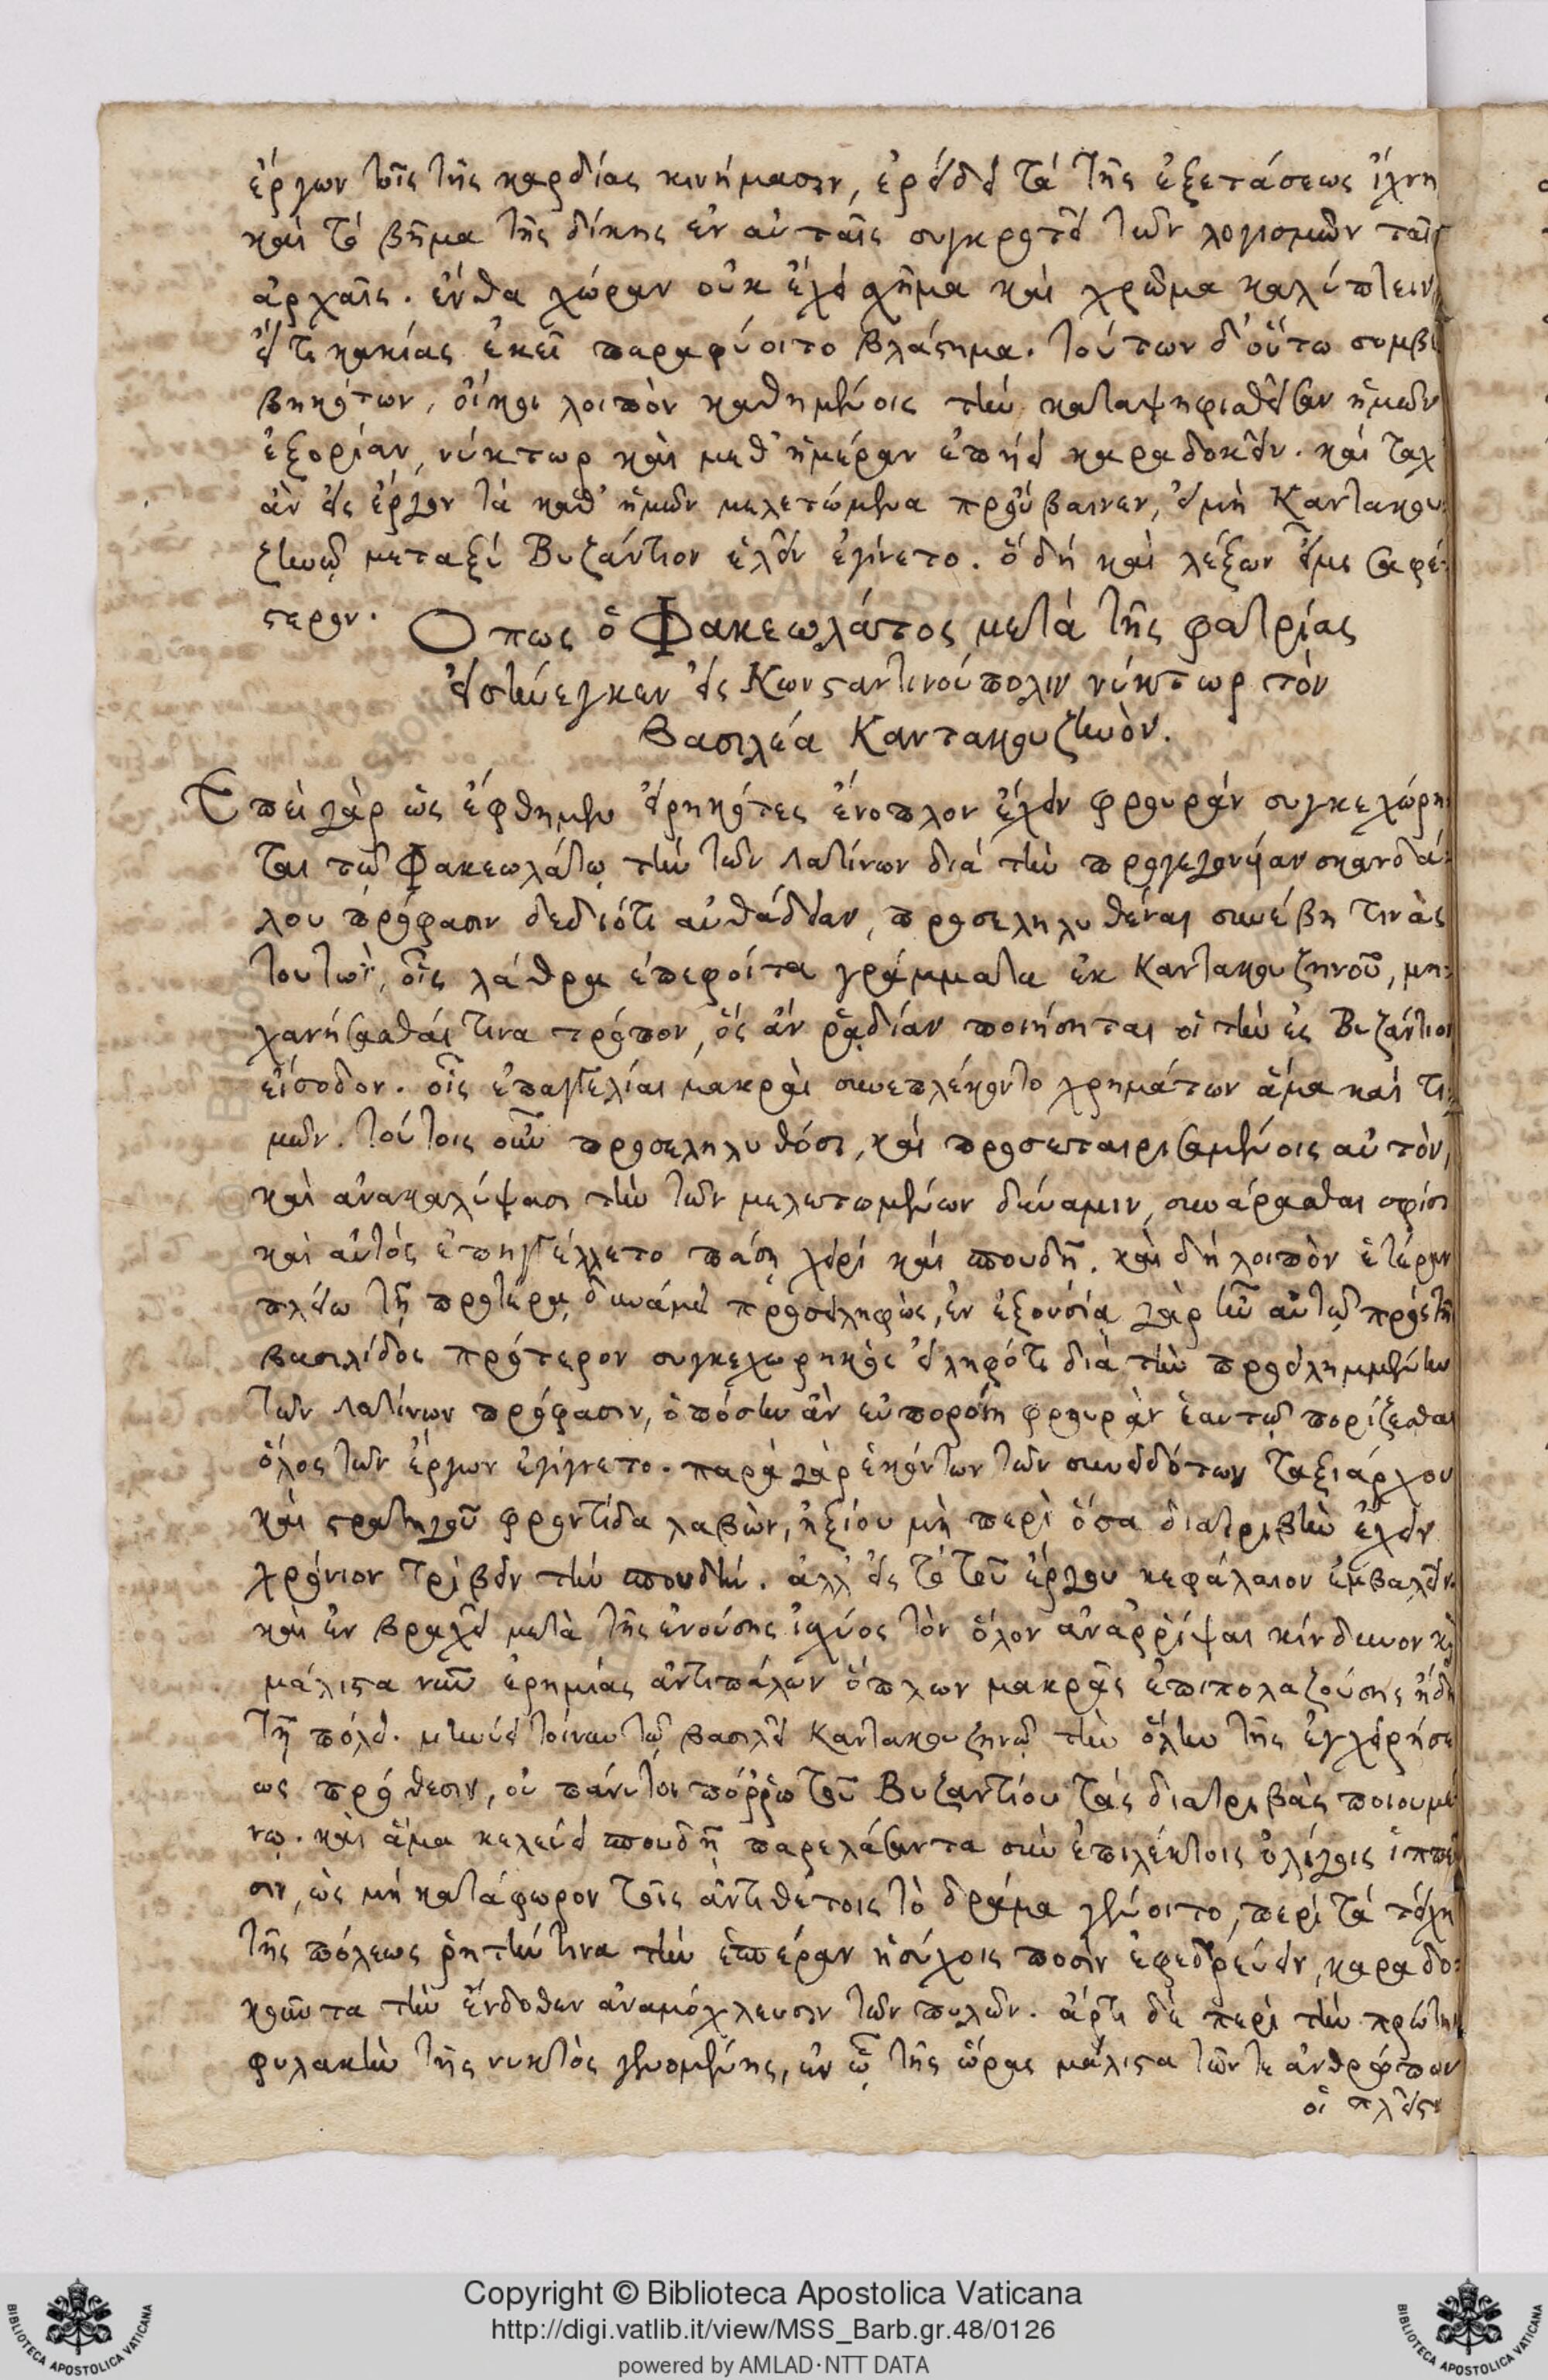 ἔργων τοῖς τῆς καρδίας κινήμασιν, ἐρείδει τὰ τῆς ἐξετάσεως ἴχνη
καὶ τὸ βῆμα τῆς δίκης ἐν αὐταῖς συγκροτεῖ τῶν λογισμῶν ταῖς
ἀρχαῖς. ἔνθα χώραν οὐκ ἔχει σχῆμα καὶ χρῶμα καλύπτειν,
εἴ τι κακίας ἐκεῖ παραφύοιτο βλάστημα. τούτων δ' οὕτω συμβε
βηκότων, οἴκοι λοιπὸν καθημένοις τὴν καταψηφισθεῖσαν ἡμῶν
ἐξορίαν, νύκτωρ καὶ μεθ' ἡμέραν ἐπῄει καραδοκεῖν. καὶ ταχ'
ἂν εἰς ἔργον τὰ καθ' ἡμῶν μελετώμενα προύβαινεν, εἰ μὴ Καντακου:
ζηνῷ μεταξὺ Βυζάντιον ἑλεῖν ἐγίνετο. ὃ δὴ καὶ λέξων εἶμι σαφέ:
στερον. Ὅπως ὁ Φακεωλάτος μετὰ τῆς φατρίας
εἰσήνεγκεν εἰς Κωνσταντινούπολιν νύκτωρ τὸν
Βασιλέα Καντακουζηνὸν.
Ἐπεὶ γὰρ ὡς ἔφθημεν εἰρηκότες ἔνοπλον ἔχειν φρουρὰν συγκεχώρη:
ται τῷ Φακεωλάτῳ τὴν τῶν Λατίνων διὰ τὴν προγεγονυῖαν σκανδά:
λου πρόφασιν δεδιότι αὐθάδειαν, προσεληλυθέναι συνέβη τινὰς
τουτωὶ, οἷς λάθρα ἐπεφοίτα γράμματα ἐκ Καντακουζηνοῦ, μη:
χανήσασθαί τινα τρόπον, ὃς ἂν ῥᾳδίαν ποιήσηται οἱ τὴν ἐς Βυζάντιον
εἴσοδον. οἷς ἐπαγγελίαι μακραὶ συνεπλέκοντο χρημάτων ἅμα καὶ τι:
μῶν. τούτοις οὖν προσεληλυθόσι, καὶ προσεταιρισαμένοις αὐτὸν,
καὶ ἀνακαλύψασι τὴν τῶν μελετωμένων δύναμιν, συνάρασθαι σφίσι
καὶ αὐτὸς ἐπηγγέλλετο πάσῃ χειρὶ καὶ σπουδῇ. καὶ δὴ λοιπὸν ἑτέραν
πλείω τῇ προτέρᾳ δυνάμει προσειληφὼς, ἐν ἐξουσίᾳ γὰρ ἦν αὐτῷ πρὸς τῆς
βασιλίδος πρότερον συγκεχωρηκὸς εἰληφότι διὰ τὴν προειλημμένην
τῶν Λατίνων πρόφασιν, ὁπόσην ἂν εὐποροίη φρουρὰν ἑαυτῷ πορίζεσθαι
ὅλος τῶν ἔργων ἐγίγνετο. παρὰ γὰρ ἑκόντων τῶν συνειδότων ταξιάρχου
καὶ στρατηγοῦ φροντίδα λαβὼν, ἠξίου μὴ περὶ ὅσα διατριβὴν ἔχειν
χρόνιον τρίβειν τὴν σπουδὴν. ἀλλ' εἰς τὸ τοῦ ἔργου κεφάλαιον ἐμβαλεῖν.
καὶ ἐν βραχεῖ μετὰ τῆς ἐνούσης ἰσχύος τὸν ὅλον ἀναῤῥίψαι κίνδυνον κὶ
μάλιστα νῦν ἐρημίας ἀντιπάλων ὅπλων μακρᾶς ἐπιπολαζούσης ἤδη
τῇ πόλει. μηνύει τοίνυν τῷ βασιλεῖ Καντακουζηνῷ τὴν ὅλην τῆς ἐγχειρήσε
ως πρόθεσιν, οὐ πάνυ τοι πόῤῥω τοῦ Βυζαντίου τὰς διατριβὰς ποιουμέ
νῳ. καὶ ἅμα κελεύει σπουδῇ παρελάσαντα σὺν ἐπιλέκτοις ὀλίγοις ἱππεῦ
σιν, ὡς μὴ κατάφωρον τοῖς ἀντιθέτοις τὸ δρᾶμα γένοιτο, περὶ τὰ τείχη
τῆς πόλεως ῥητήν τινα τὴν ἑσπέραν ἡσύχοις ποσὶν ἐφεδρεύειν, καραδο:
κοῦντα τὴν ἔνδοθεν ἀναμόχλευσιν τῶν πυλῶν. ἄρτι δὲ περὶ τὴν πρώτην
φυλακὴν τῆς νυκτὸς γενομένης, ἐν ᾧ τῆς ὥρας μάλιστα τῶν τε ἀνθρώπων
οἱ πλεῖστοι
Copyright © Biblioteca Apostolica Vaticana
http://digi.vatlib.it/view/MSS_Barb.gr.48/0126
powered by AMLAD·NTT DATA
BIBLIOTECA APOSTOLICA VATICANA
BIBLIOTECA APOSTOLICA VATICANA